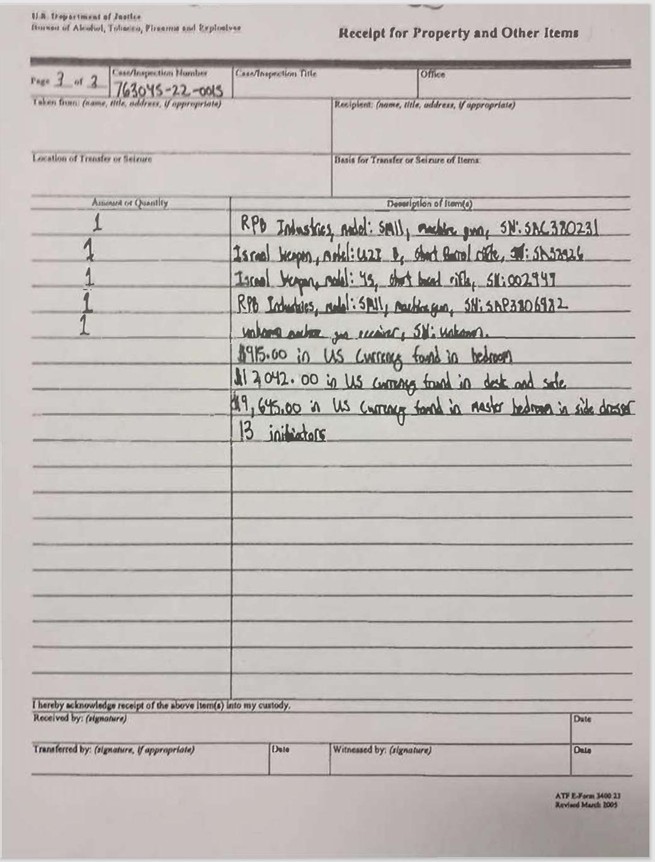 U.S. Department of Justice
Bureau of Alcohol, Tobacco, Firearms and Explosives
Receipt for Property and Other Items
Page 3 of 3
Case/Inspection Number
763045-22-0015
Case/Inspection Title
Office
Taken from: (name, title, address, if appropriate)
Recipient: (name, title, address, if appropriate)
Location of Transfer or Seizure
Basis for Transfer or Seizure of Items
Amount or Quantity
Description of Item(s)
1 RPB Industries, model: SM11, machine gun, SN: SAC380231
1 Israel Weapon, model: UZI B, short barrel rifle, SN: SA52926
1 Israel Weapon, model: 45, short barrel rifle, SN: 002949
1 RPB Industries, model: SM11, machinegun, SN: SAP3806982
1 unknown machine gun receiver, SN: unknown.
$915.00 in US Currency found in bedroom
in US Currency found in desk and safe
$9,645.00 in US Currency found in master bedroom in side dresser
13 initiators
I hereby acknowledge receipt of the above item(s) into my custody.
Received by: (signature)
Date
Transferred by: (signature, if appropriate)
Date
Witnessed by: (signature)
Date
ATF E-Form 3400 23
Revised March 2005